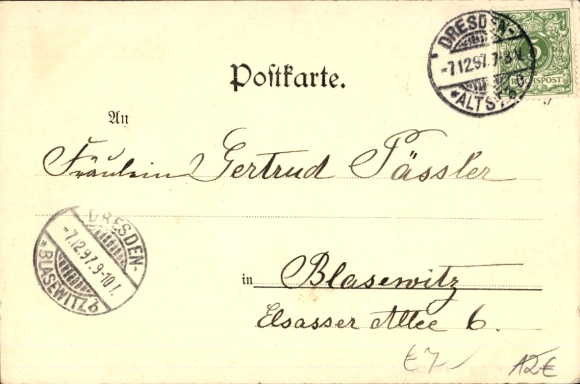 DRESDEN-
-7.12.97.7-8V.
*ALTST.*
5
REICHSPOST
Postkarte.
An
Fräulein Gertrud Pässler
DRESDEN-
-7.12.97.9-10V.
*BLASEWITZ b
in Blasewitz
Elsasser Allee 6.
€7
A2€